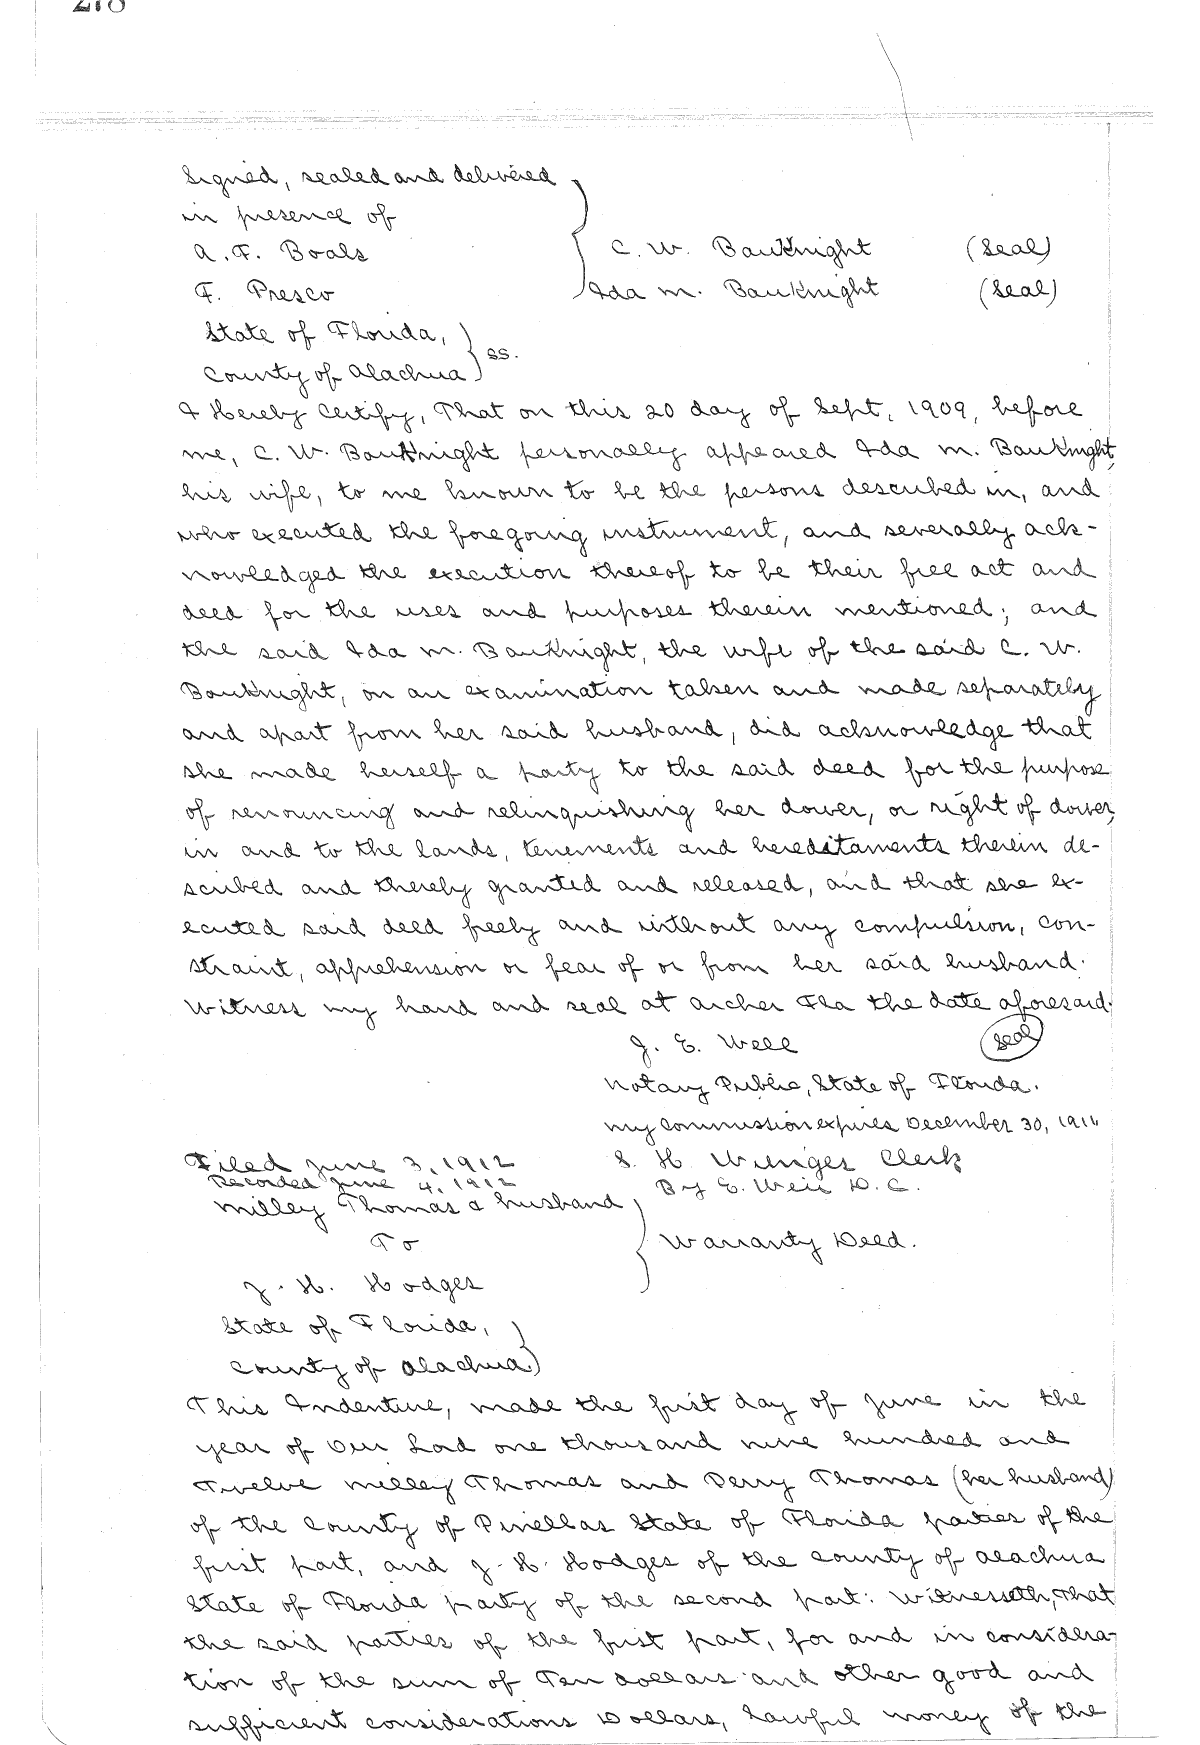 278
Signed, sealed and delivered
in presence of
A. F. Boals
C. W. BauKnight (Seal)
F. Presco
Ida M. BauKnight (Seal)
State of Florida,
County of Alachua ss.
I Hereby Certify, That on this 20 day of Sept, 1909, before
me, C. W. BauKnight personally appeared Ida M. BauKnight,
his wife, to me known to be the persons described in, and
who executed the foregoing instrument, and severally ack-
nowledged the execution thereof to be their free act and
deed for the uses and purposes therein mentioned; and
the said Ida M. BauKnight, the wife of the said C. W.
BauKnight, on an examination taken and made separately
and apart from her said husband, did acknowledge that
she made herself a party to the said deed for the purpose
of renouncing and relinquishing her dower, or right of dower,
in and to the lands, tenements and hereditaments therein de-
scribed and thereby granted and released, and that she ex-
ecuted said deed freely and without any compulsion, con-
straint, apprehension or fear of or from her said husband.
Witness my hand and seal at Archer Fla the date aforesaid.
J. E. Well (Seal)
Notary Public, State of Florida.
My commission expires December 30, 1911
Filed June 3, 1912
S. H. Wienges Clerk
Recorded June 4, 1912
By E. Weir D.C.
Milley Thomas & husband
To
Warranty Deed.
J. H. Hodges
State of Florida,
County of Alachua
This Indenture, made the first day of June in the
year of Our Lord one thousand nine hundred and
Twelve Milley Thomas and Perry Thomas (her husband)
of the County of Pinellas State of Florida parties of the
first part, and J. H. Hodges of the County of Alachua
State of Florida party of the second part: Witnesseth, That
the said parties of the first part, for and in considera-
tion of the sum of Ten Dollars and other good and
sufficient considerations Dollars, lawful money of the